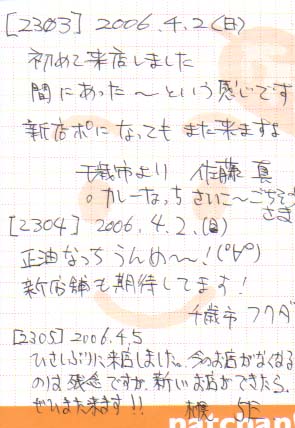 [2303] 2006.4.2(日)
初めて来店しました
間にあった〜という感じです
新店ポになっても また来ますよ
千歳市より 佐藤 真
。カレーなっち さいこ〜ごちそうさま
[2304] 2006.4.2.(日)
正油なっち うんめ〜〜!(°∀°)
新店舗も期待してます!
千歳市 フクダ
[2305] 2006.4.5
ひさしぶりに来店しました。今のお店がなくなる
のは残念ですが、新しいお店ができたら、
ぜひまた来ます!!